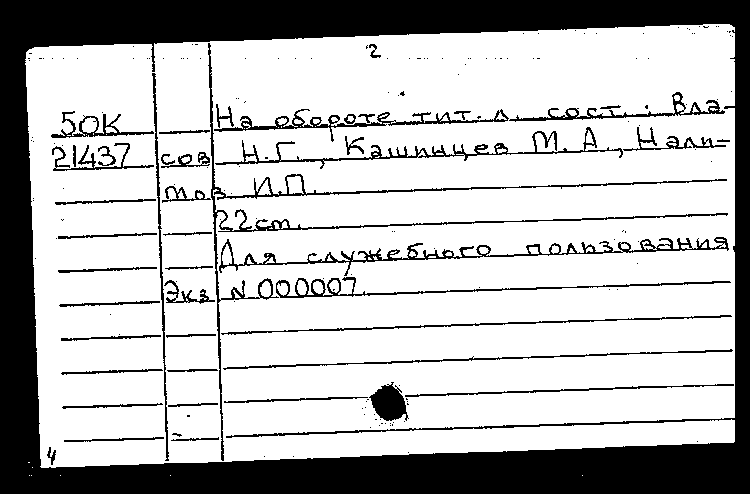 2
50К На обороте тит. л. сост.: Вла-
21437 сов Н.Г., Кашинцев М.А., Нали-
тов И.П.
22 см.
Для служебного пользования.
Экз N 000007.
4